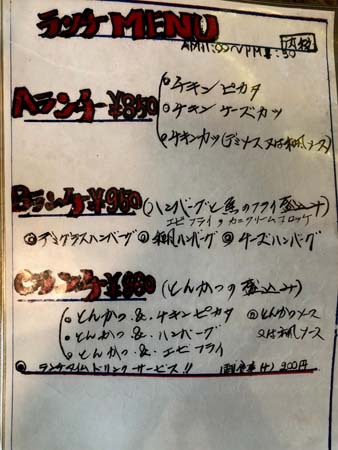 ランチ MENU
AM11:00〜PM 内税
Aランチ ¥850
◦チキン ピカタ
◦チキン チーズカツ
◦チキンカツ(デミソース 又は和風ソース)
Bランチ ¥950 (ハンバーグと魚のフライ盛込み)
エビフライ カニクリームコロッケ
◎デミグラスハンバーグ ◎和風ハンバーグ ◎チーズハンバーグ
Cランチ (とんかつの盛込み)
◦とんかつ.&.チキンピカタ ◎とんかつソース
◦とんかつ.&.ハンバーグ 又は和風ソース
◦とんかつ.&.エビフライ
◎ランチタイムドリンクサービス!!